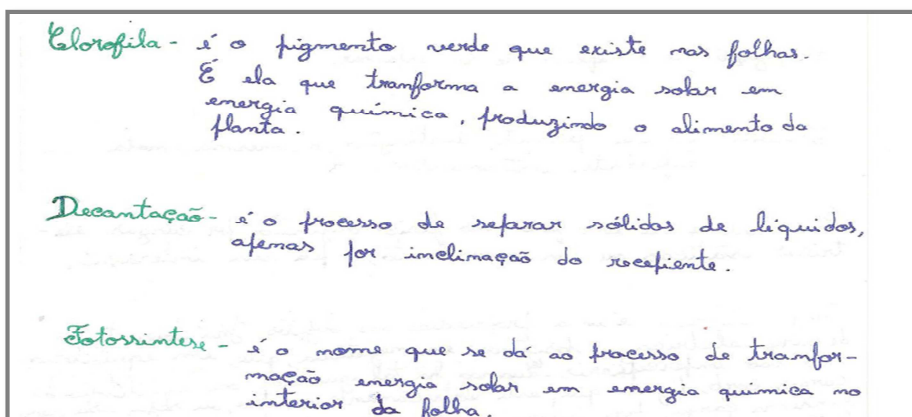 Clorofila - é o pigmento verde que existe nas folhas.
É ela que tranforma a energia solar em
energia química, produzindo o alimento da
planta.
Decantação - é o processo de separar sólidos de líquidos,
apenas por inclinação do recepiente.
Fotossintese - é o nome que se dá ao processo de tranfor-
mação energia solar em energia quimica no
interior da folha.